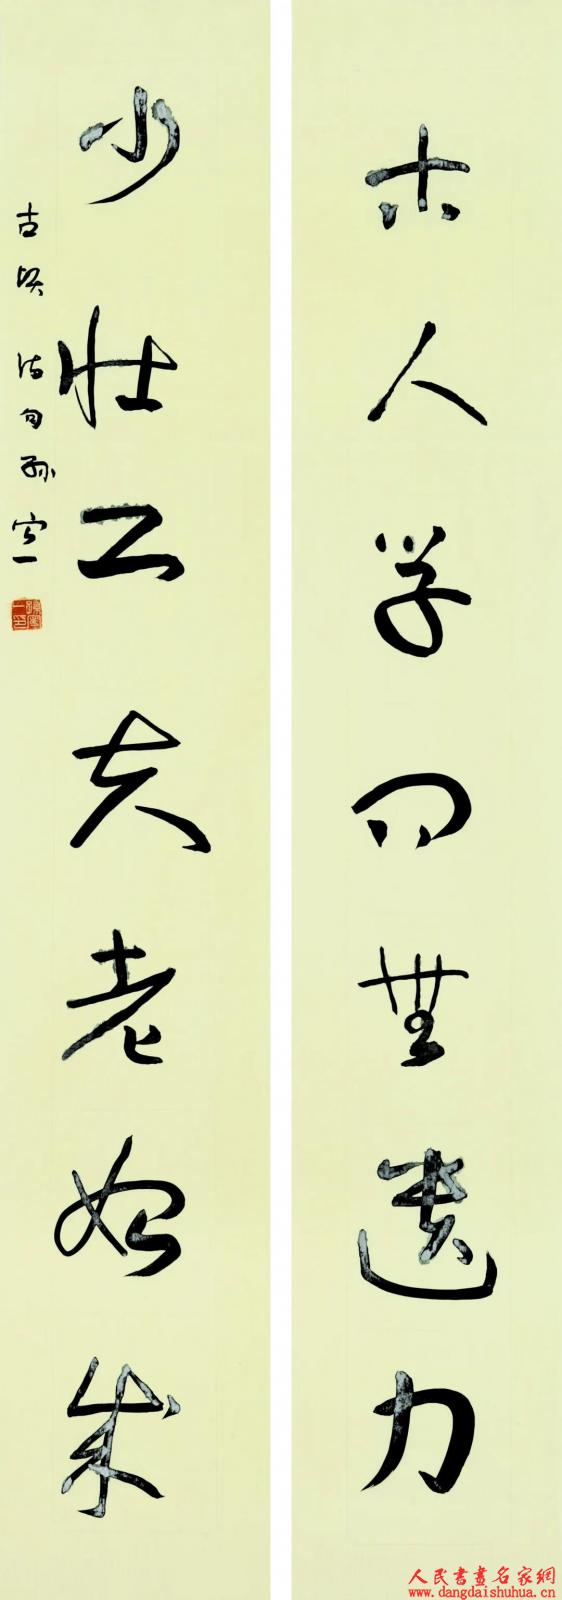 古人学问無遗力
少壮工夫老始成
古贤诗句孙一
人民書畫名家網
www.dangdaishuhua.cn